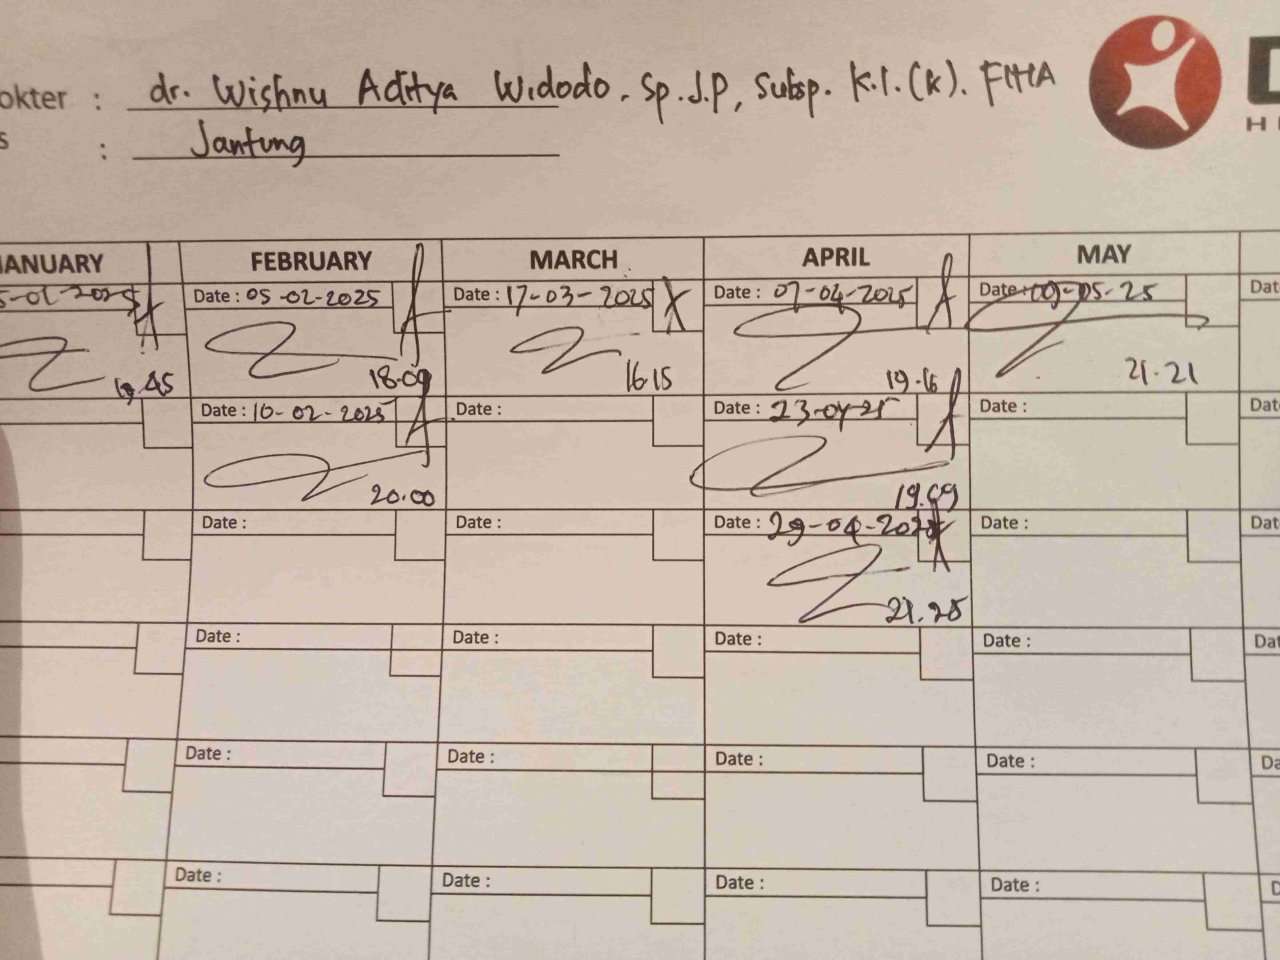 okter : dr. Wishnu Aditya Widodo. Sp.J.P, Subsp. K.I.(K). FIHA
s : Jantung
ANUARY FEBRUARY MARCH APRIL MAY
5-01-2025 Date : 05-02-2025 Date : 17-03-2025 Date : 07-04-2025 Date : 09-05-25 Dat
.45 18.09 16.15 19.16 21.21
Date : 10-02-2025 Date : Date : 23-04-25 Date : Dat
20.00 19.09
Date : Date : Date : 29-04-2025 Date : Dat
21.25
Date : Date : Date : Date : Dat
Date : Date : Date : Date : Da
Date : Date : Date : Date : D